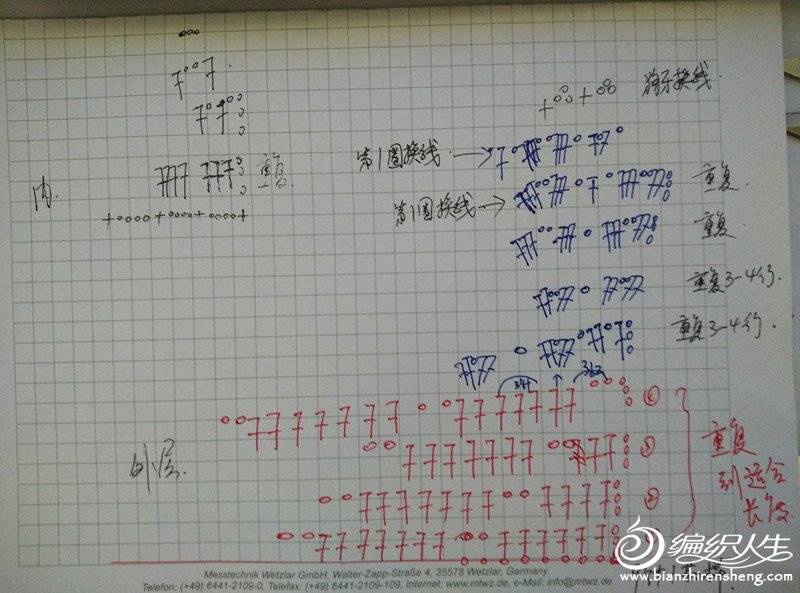 狗牙换线.
第1圈换线
内.
重复
第1圈换线
重复.
重复
重复3-4行.
重复3-4行.
外层.
重复
到适合
长度
编织人生
www.bianzhirensheng.com
Messtechnik Wetzlar GmbH, Walter-Zapp-Straße 4, 35578 Wetzlar, Germany
Telefon: (+49) 6441-2109-0, Telefax: (+49) 6441-2109-109, Internet: www.mtwz.de, e-Mail: info@mtwz.de